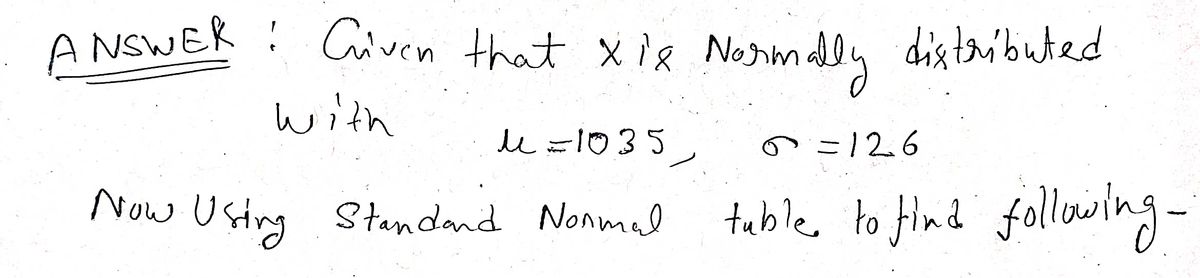 ANSWER : Given that X is Normally distributed
with μ = 1035, σ = 126
Now Using Standard Normal table to find following-